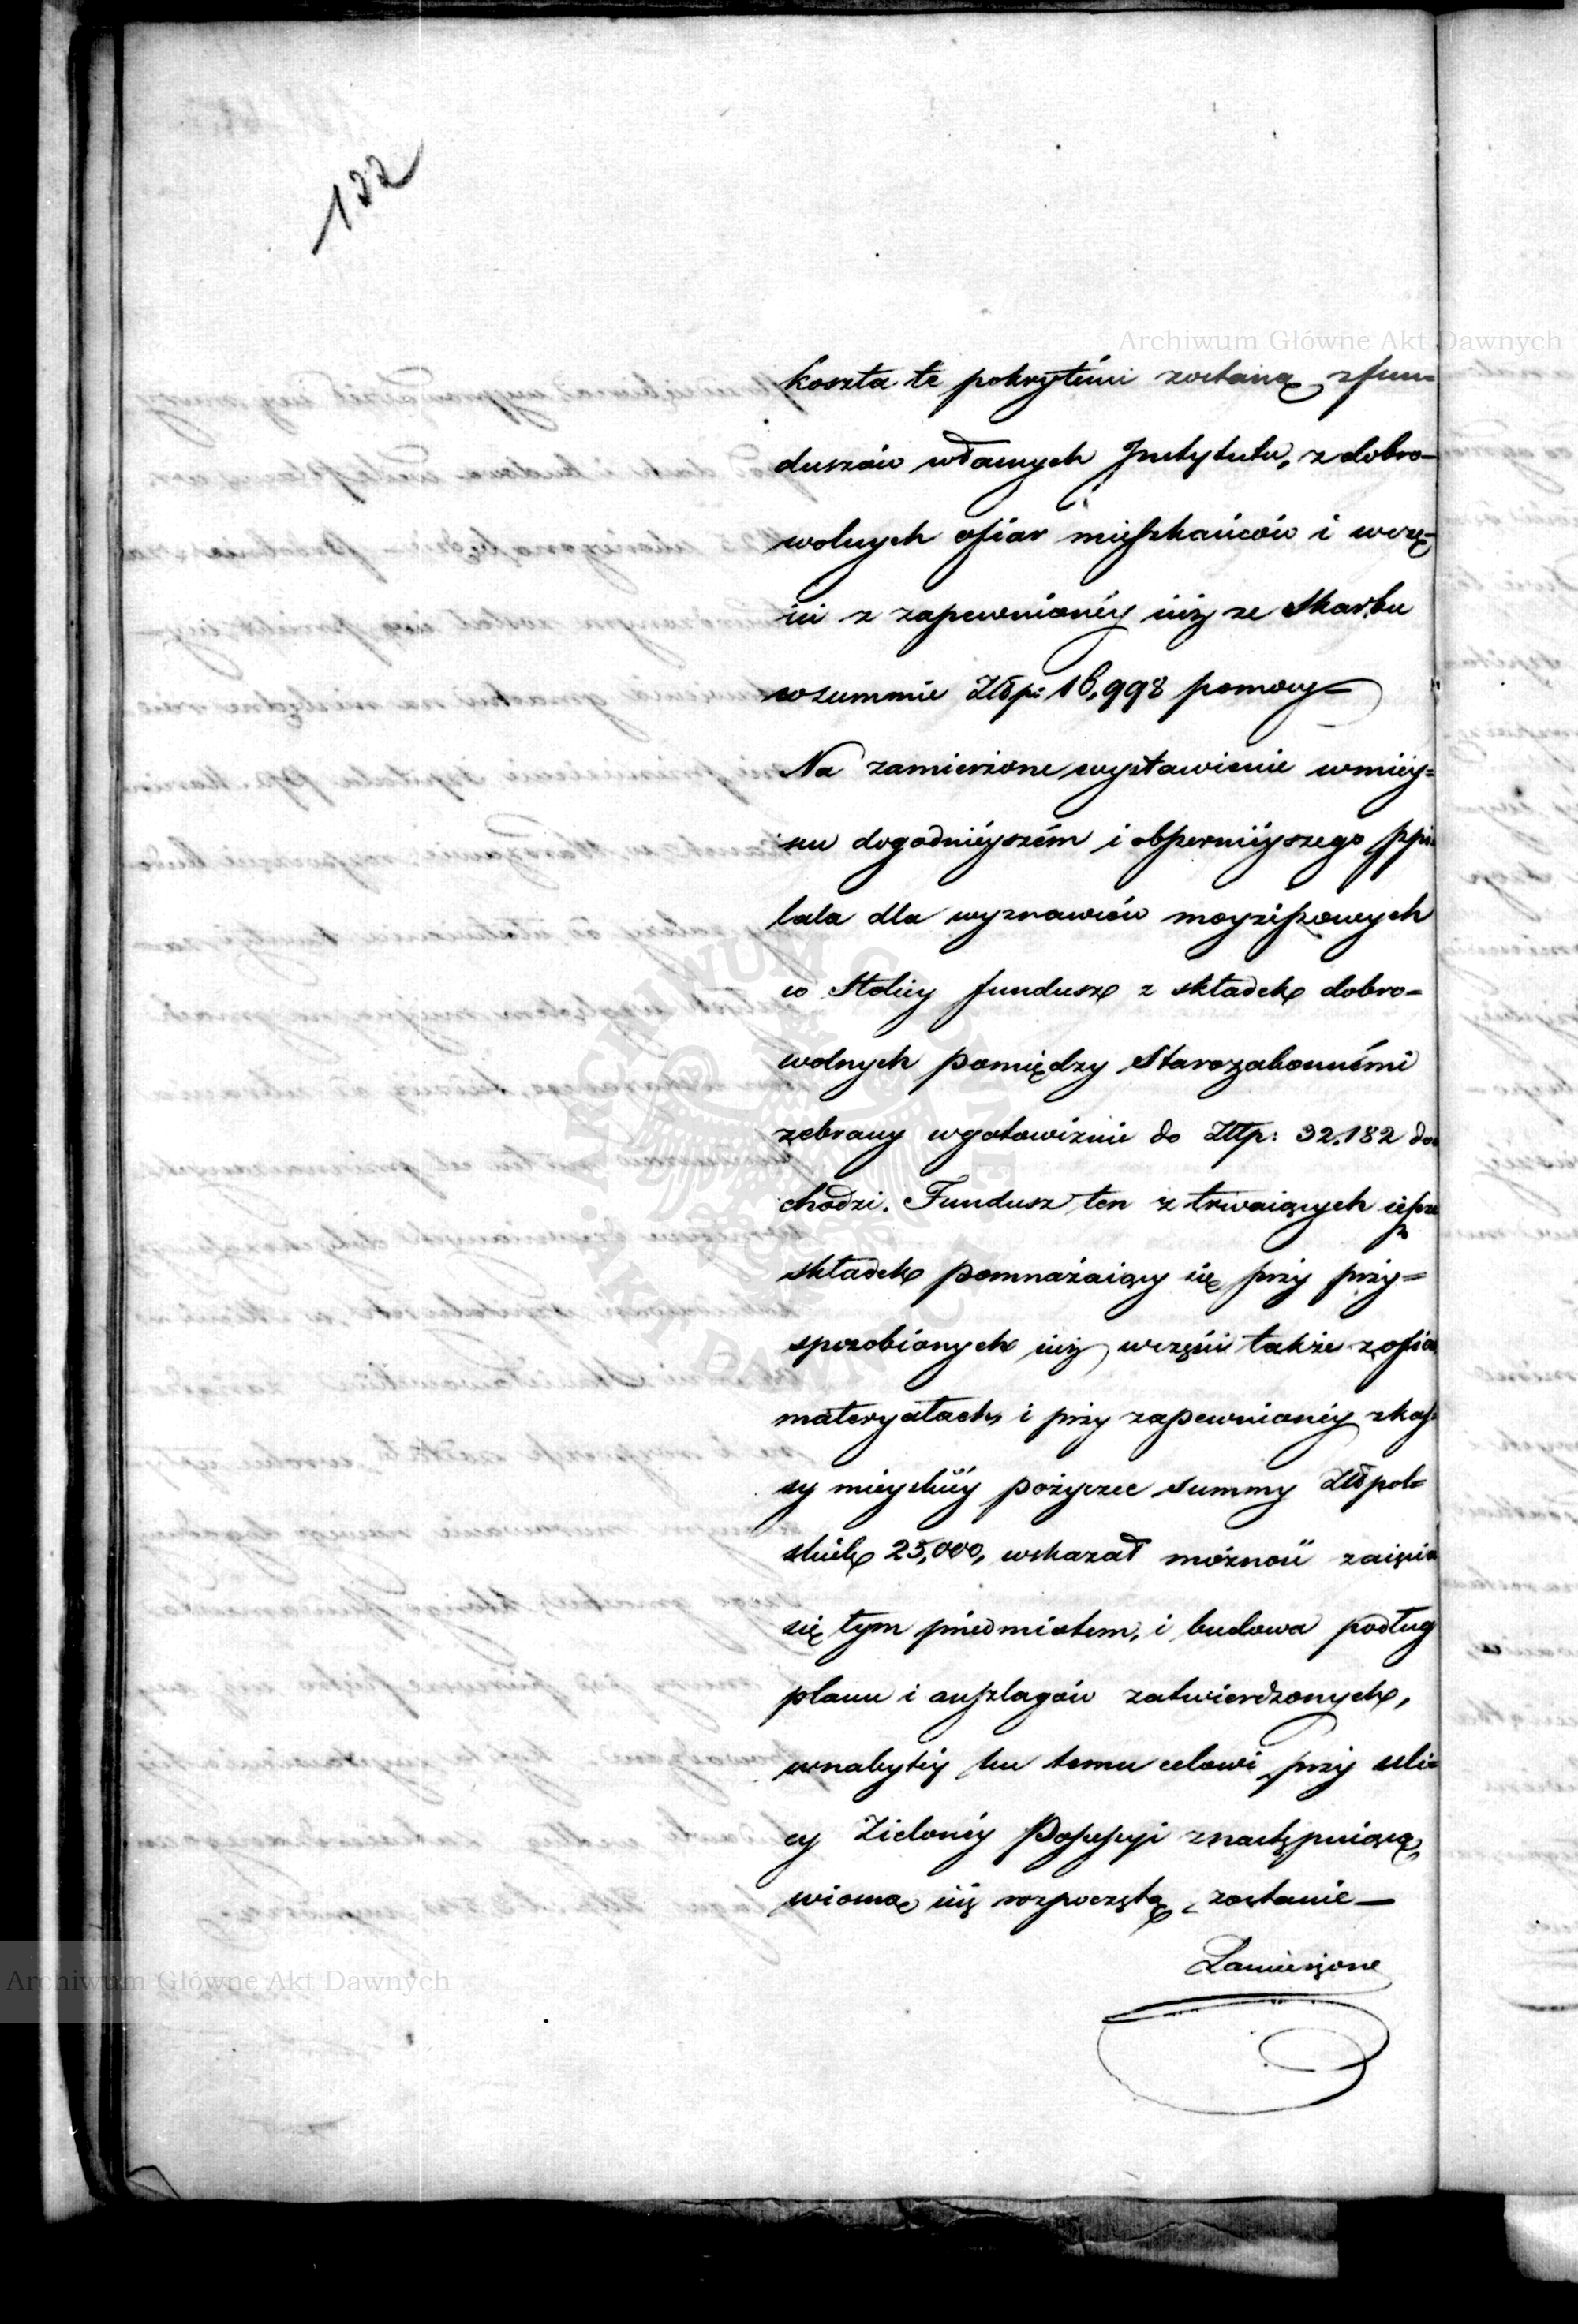 122
Archiwum Główne Akt Dawnych
koszta te pokrytémi zostaną z fun=
duszów własnych Instytutu, z dobro=
wolnych ofiar mieszkańców i wczę=
ści z zapewnionéy iuż ze Skarbu
w summie Złp: 16,998 pomocy=
Na zamierzone wystawienie w miéy=
scu dogodniéyszém i obszerniéyszego szpi=
tala dla wyznawców moyżeszowych
w Stolicy fundusz z składek dobro=
wolnych pomiędzy Starozakonnémi
zebrany w gotowiźnie do Złp: 32,182 do=
chodzi. Fundusz ten z trwaiących ieszcze
składek pomnażaiący się przy przy=
sposobionych iuż wczęści także z ofiar
materyałach, i przy zapewnionéy z kas=
sy mieyskiéy pożyczce summy Złpol=
skich 25,000, wskazał możność zaięcia
się tym przedmiotem, i budowa podług
planu i anszlagów zatwierdzonych,
w nabytéy ku temu celowi przy uli=
cy Zielonéy Possessyi z następuiącą
wiosną iuż rozpoczętą zostanie—
Zamierzone
Archiwum Główne Akt Dawnych
ARCHIWUM GŁÓWNE AKT DAWNYCH